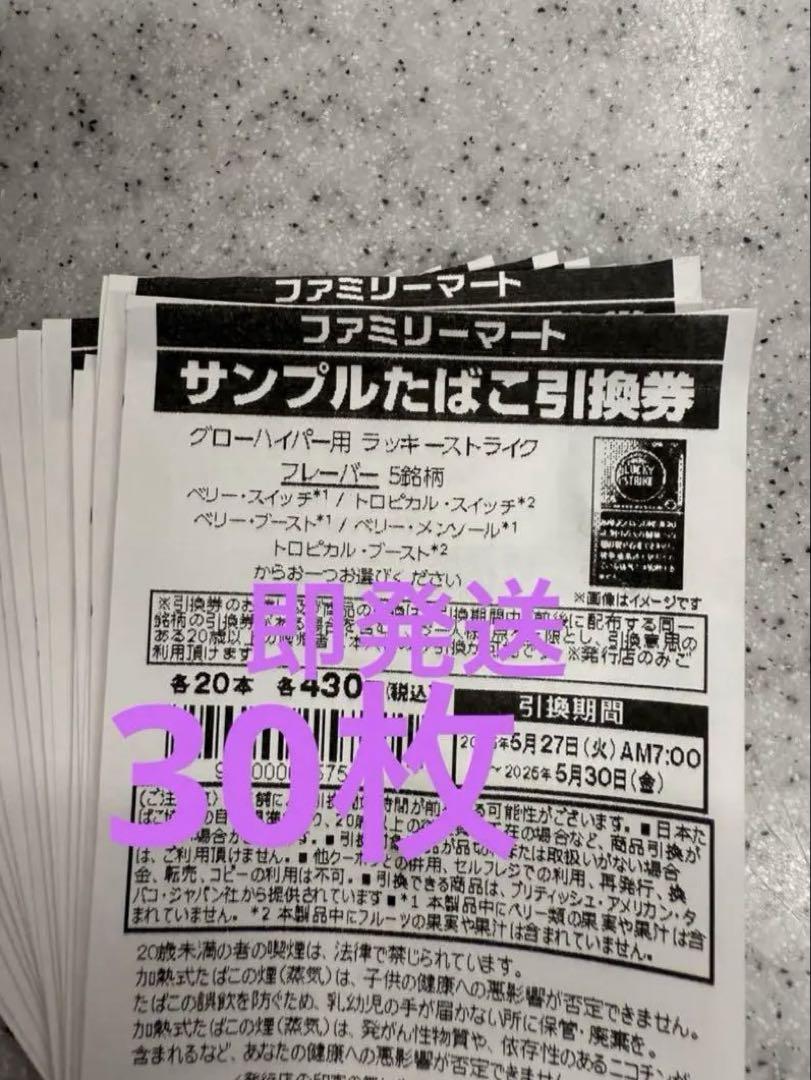 ファミリーマート
ファミリーマート
サンプルたばこ引換券
グローハイパー用 ラッキーストライク
フレーバー 5銘柄
ベリー・スイッチ*1 / トロピカル・スイッチ*2
ベリー・ブースト*1 / ベリー・メンソール*1
トロピカル・ブースト*2
からお一つお選びください
LUCKY
STRIKE
※画像はイメージです
即発送
※引換券のお
引換期間中
前後に配布する同一
銘柄の引換券
限とし、引換意思の
ある20歳以上
※発行店のみご
利用頂けます
各20本 各430 (税込)
30枚
引換期間
5月27日(火)AM7:00
~2025年5月30日(金)
(ご注
時間が前
可能性がございます。■日本た
ばこ
20歳以上の
在の場合など、商品引換が
場合が
■引換対象
品が品切
または取扱いがない場合
は、ご利用頂けません。■他クーポンとの併用、セルフレジでの利用、再発行、換
金、転売、コピーの利用は不可。■引換できる商品は、ブリティッシュ・アメリカン・タ
バコ・ジャパン社から提供されています■*1 本製品中にベリー類の果実や果汁は含
まれていません。*2 本製品中にフルーツの果実や果汁は含まれていません。
20歳未満の者の喫煙は、法律で禁じられています。
加熱式たばこの煙(蒸気)は、子供の健康への悪影響が否定できません。
たばこの誤飲を防ぐため、乳幼児の手が届かない所に保管・廃棄を。
加熱式たばこの煙(蒸気)は、発がん性物質や、依存性のあるニコチンが
含まれるなど、あなたの健康への悪影響が否定できません